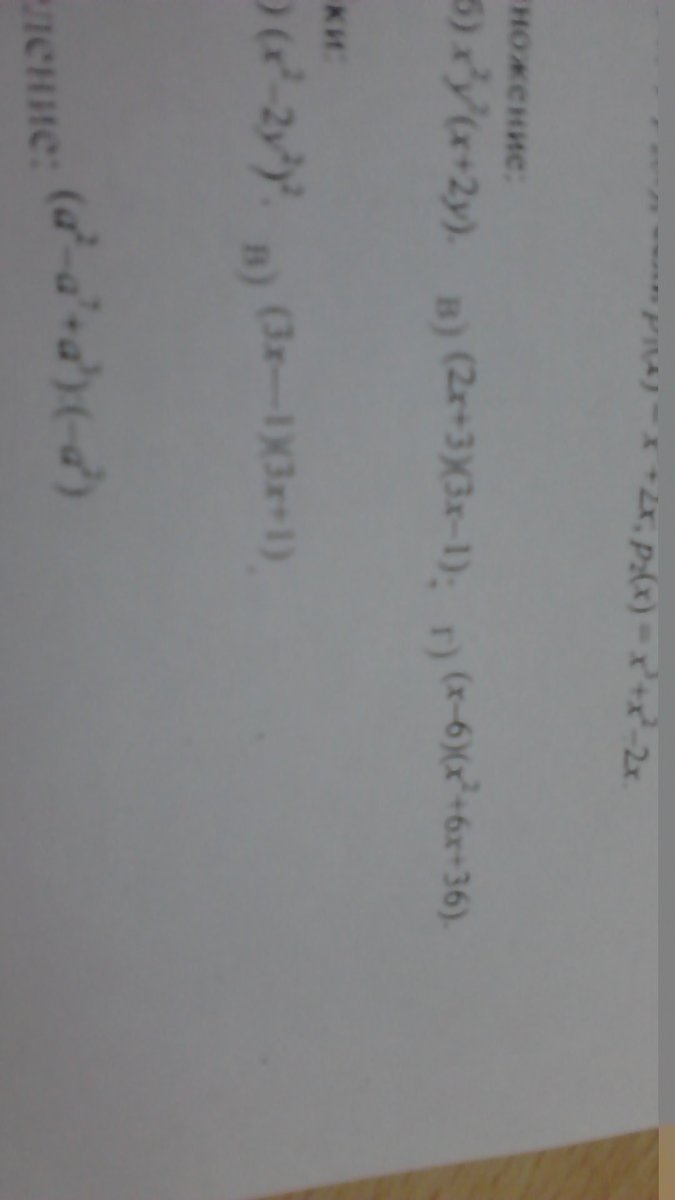 = x +2x, p₂(x) = x³+x²−2x.
ножение:
б) x²y²(x+2y). в) (2x+3)(3x−1); г) (x−6)(x²+6x+36).
ки:
) (x²−2y²)². в) (3x—1)(3x+1).
ление: (a²−a²+a³):(−a²)